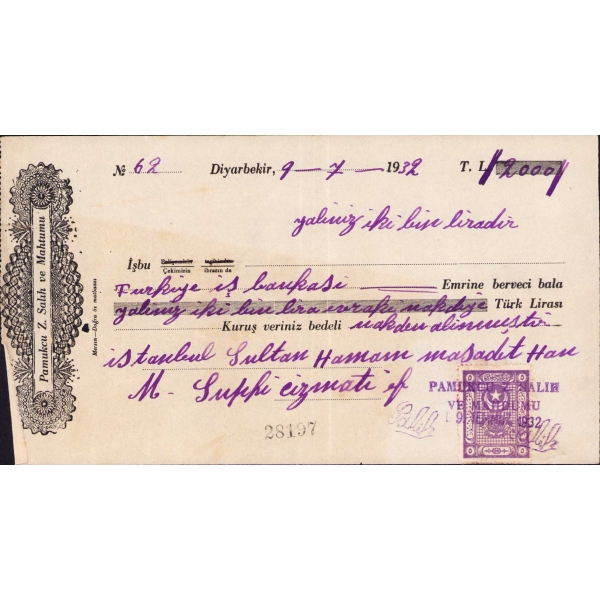 Pamukcu Z. Salih ve Mahtumu
Mersin—Doğru öz matbaası
№ 62 Diyarbekir, 9 — 7 — 1932 T. L. // 2000 //
yalınız iki bin liradır
İşbu
Çekimizin ibrazın da
Türkiye iş bankasi Emrine berveci bala
yalınız iki bin lira evrakı nakdiye Türk Lirası
Kuruş veriniz bedeli nakden alınmıştır
istanbul Sultan Hamam masadet Han
M. Suphi cizmati ef
PAMUKCU Z. SALİH
VE MAHDUMU
9 1932
Salih Salih
28197